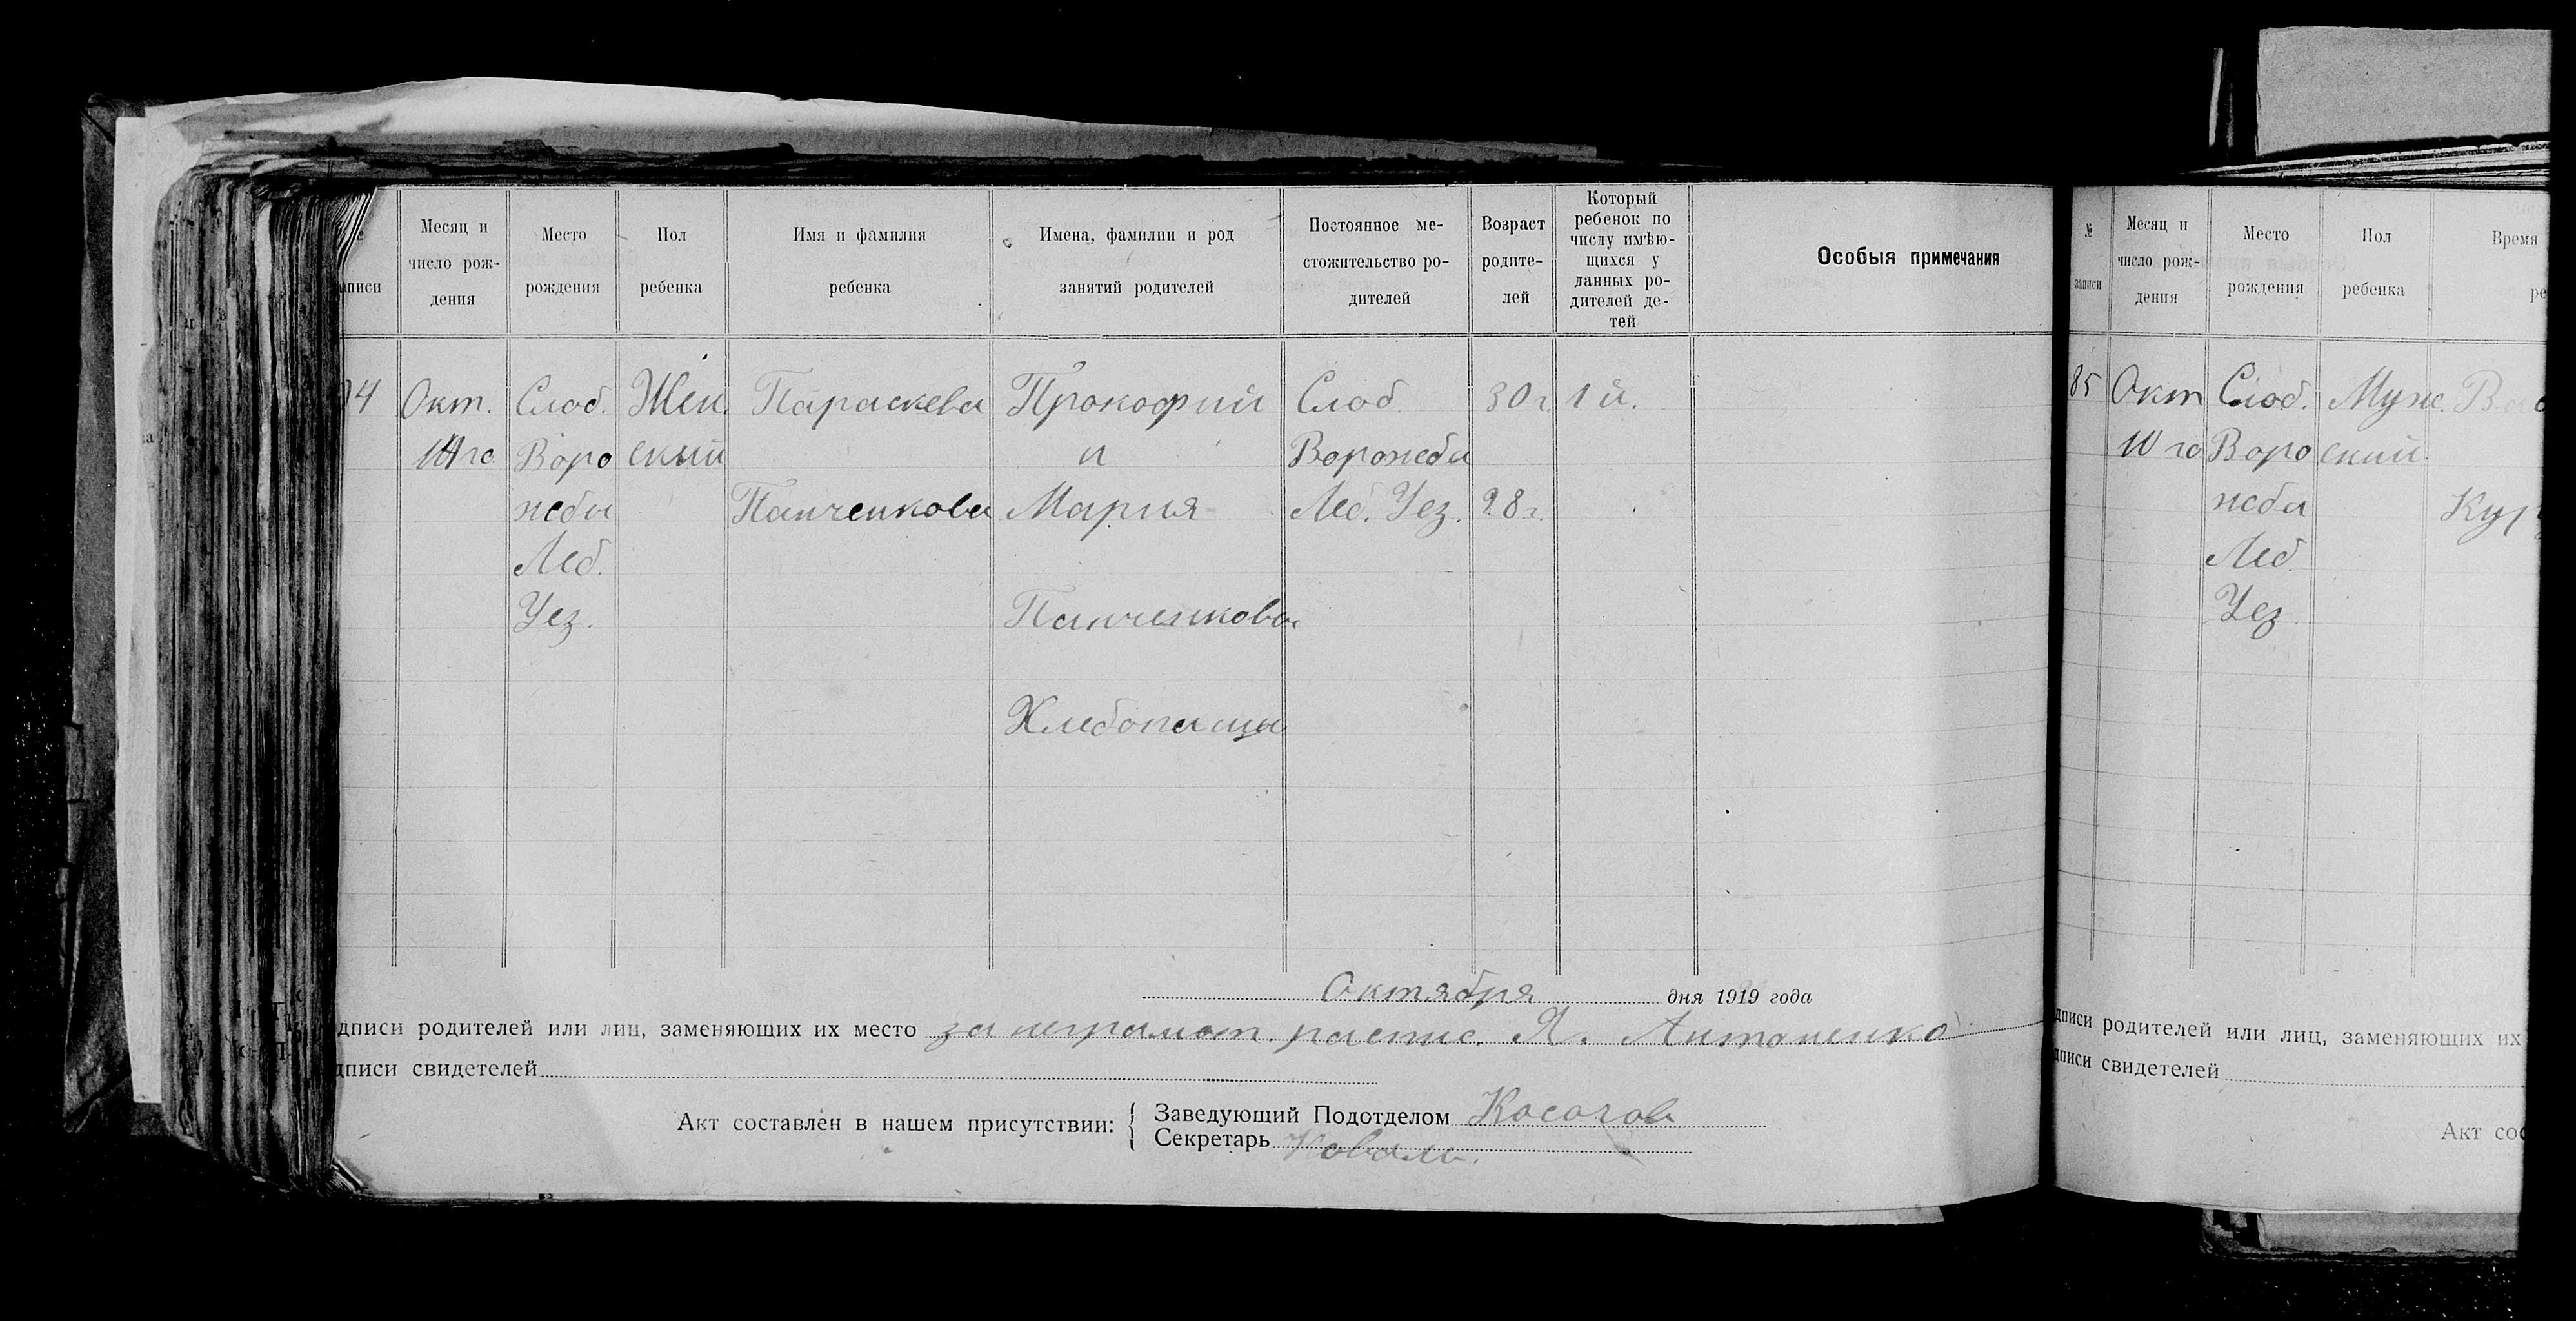 Месяц и число рож-дения
Место рождения
Пол ребенка
Имя и фамилия ребенка
Имена, фамилии и род занятий родителей
Постоянное ме-стожительство ро-дителей
Возраст родите-лей
Который ребенок по числу имѣю-щихся у данных ро-дителей де-тей
Особыя примечания
4 Окт. Слоб. Жен. Параскева Прокофий Слоб. 30 г. 1 й.
14 го Воро ский и Ворожба
жба Панченкова Мария Леб. Уез. 28 г.
Леб.
Уез. Панченкова
Хлебопашцы
Октября дня 1919 года
дписи родителей или лиц, заменяющих их место за неграмот. распис. Я. Антоненко
дписи свидетелей
Акт составлен в нашем присутствии:
Заведующий Подотделом Косогов
Секретарь Коваль.
№ записи
Месяц и число рож-дения
Место рождения
Пол ребенка
Время
85 Окт Слоб. Муж.
10 го Воро ский
жба
Леб.
Уез
дписи родителей или лиц, заменяющих их
дписи свидетелей
Акт сос